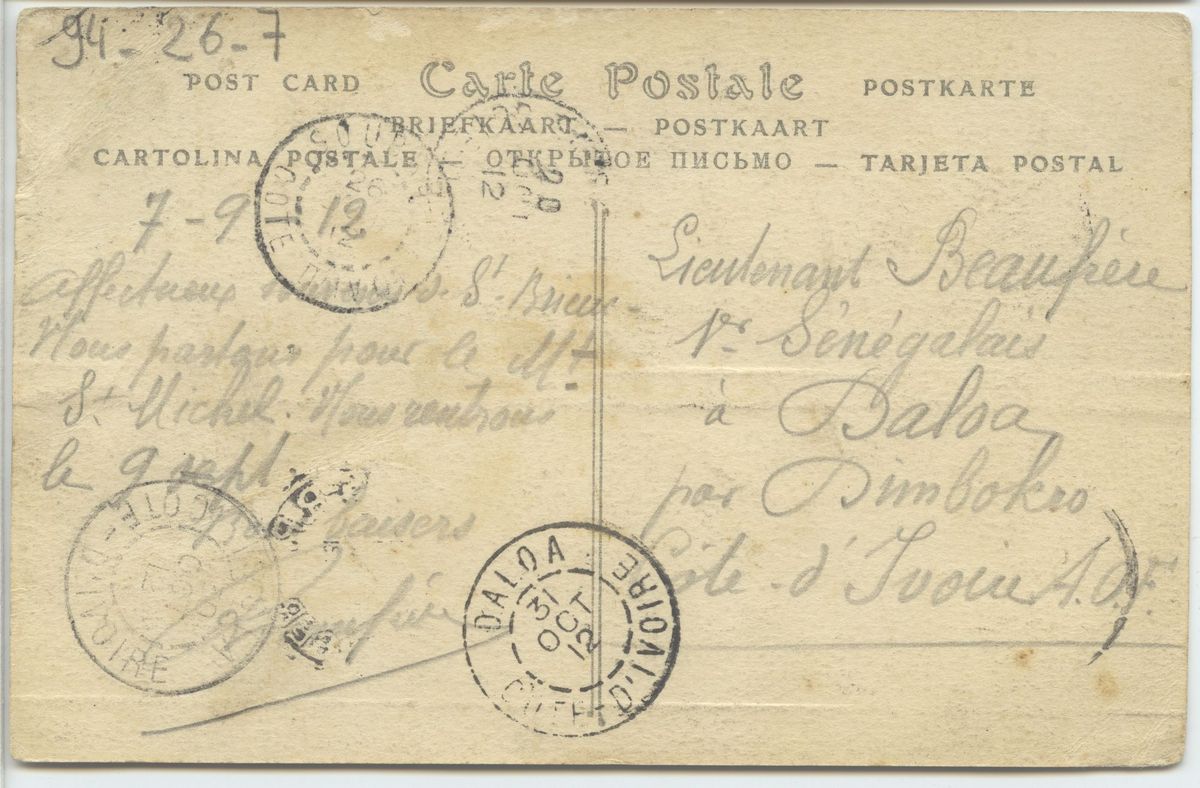 94-26-7
POST CARD Carte Postale POSTKARTE
BRIEFKAART — POSTKAART
CARTOLINA POSTALE — ОТКРЫТОЕ ПИСЬМО — TARJETA POSTAL
7-9 12
Affectueux de St Brieuc.
Nous partons pour le Mt
St Michel. Nous rentrons
le 9 sept
Bons baisers
Beaufrère
Lieutenant Beaufrère
1er Sénégalais
à Daloa
par Dimbokro
Côte-d'Ivoire A.O.F.
COTE D'IVOIRE
COTE-D'IVOIRE
DALOA
31
OCT
12
COTE D'IVOIRE